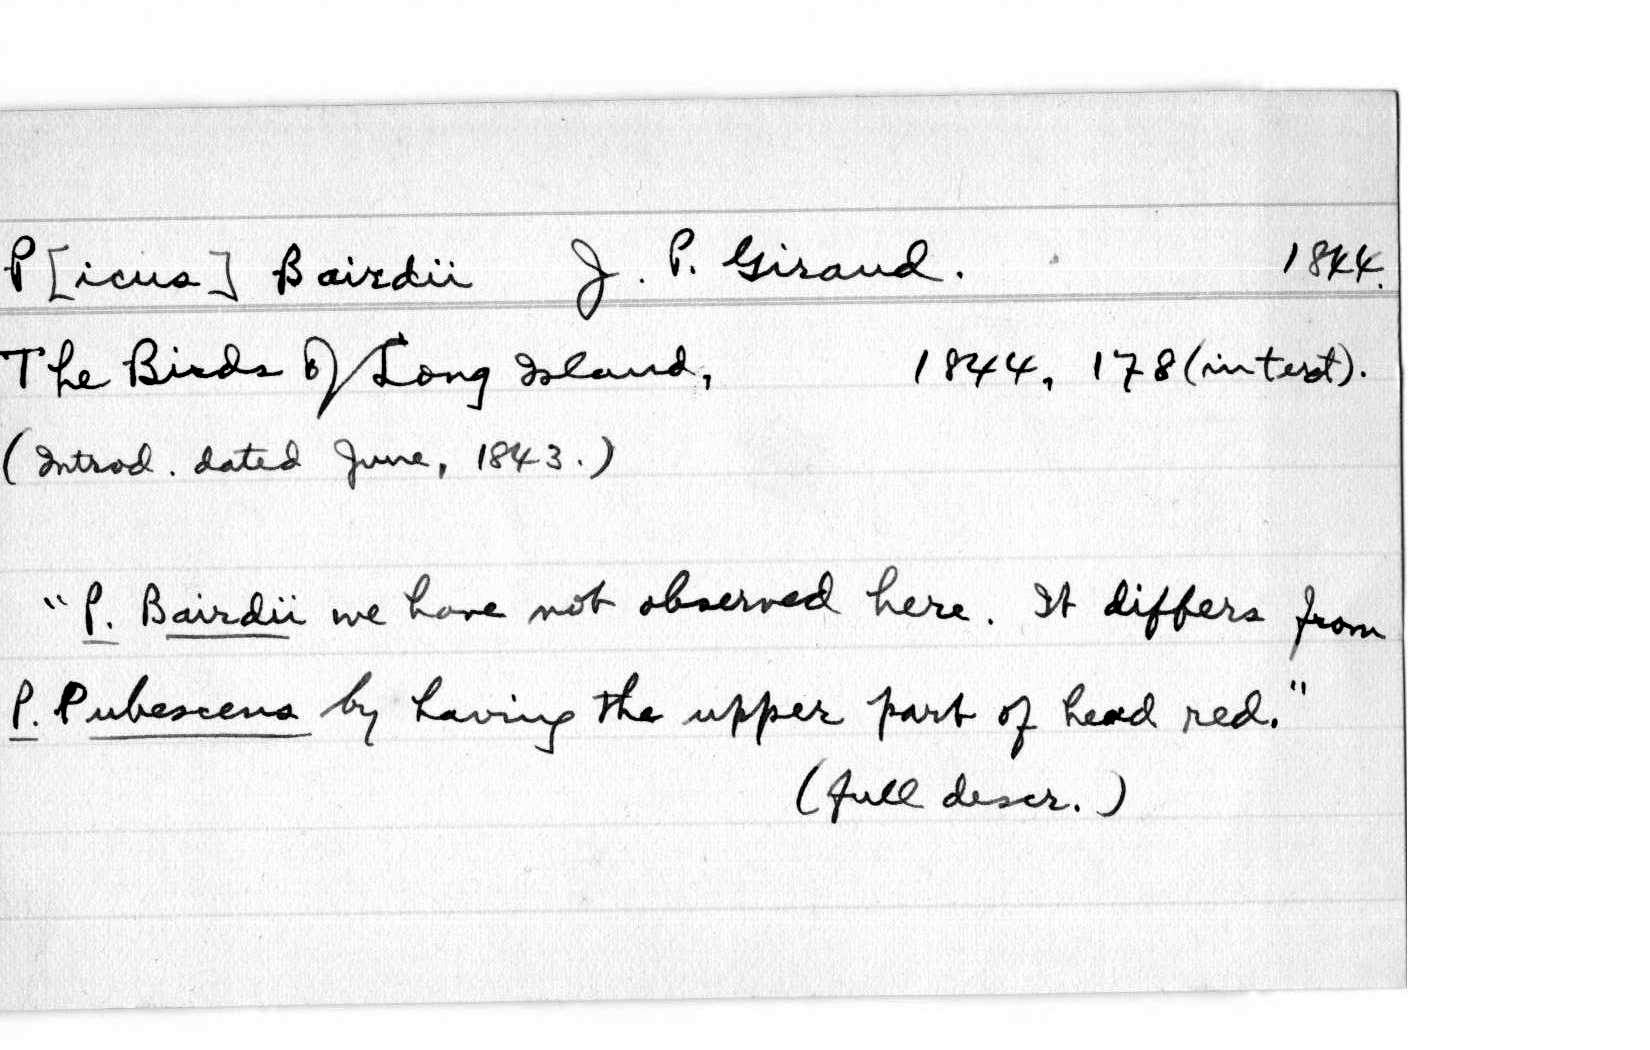 P[icus] Bairdii J. P. Giraud. 1844.
The Birds of Long Island, 1844, 178 (in text).
(Introd. dated June, 1843.)
"P. Bairdii we have not observed here. It differs from
P. Pubescens by having the upper part of head red."
(full descr.)